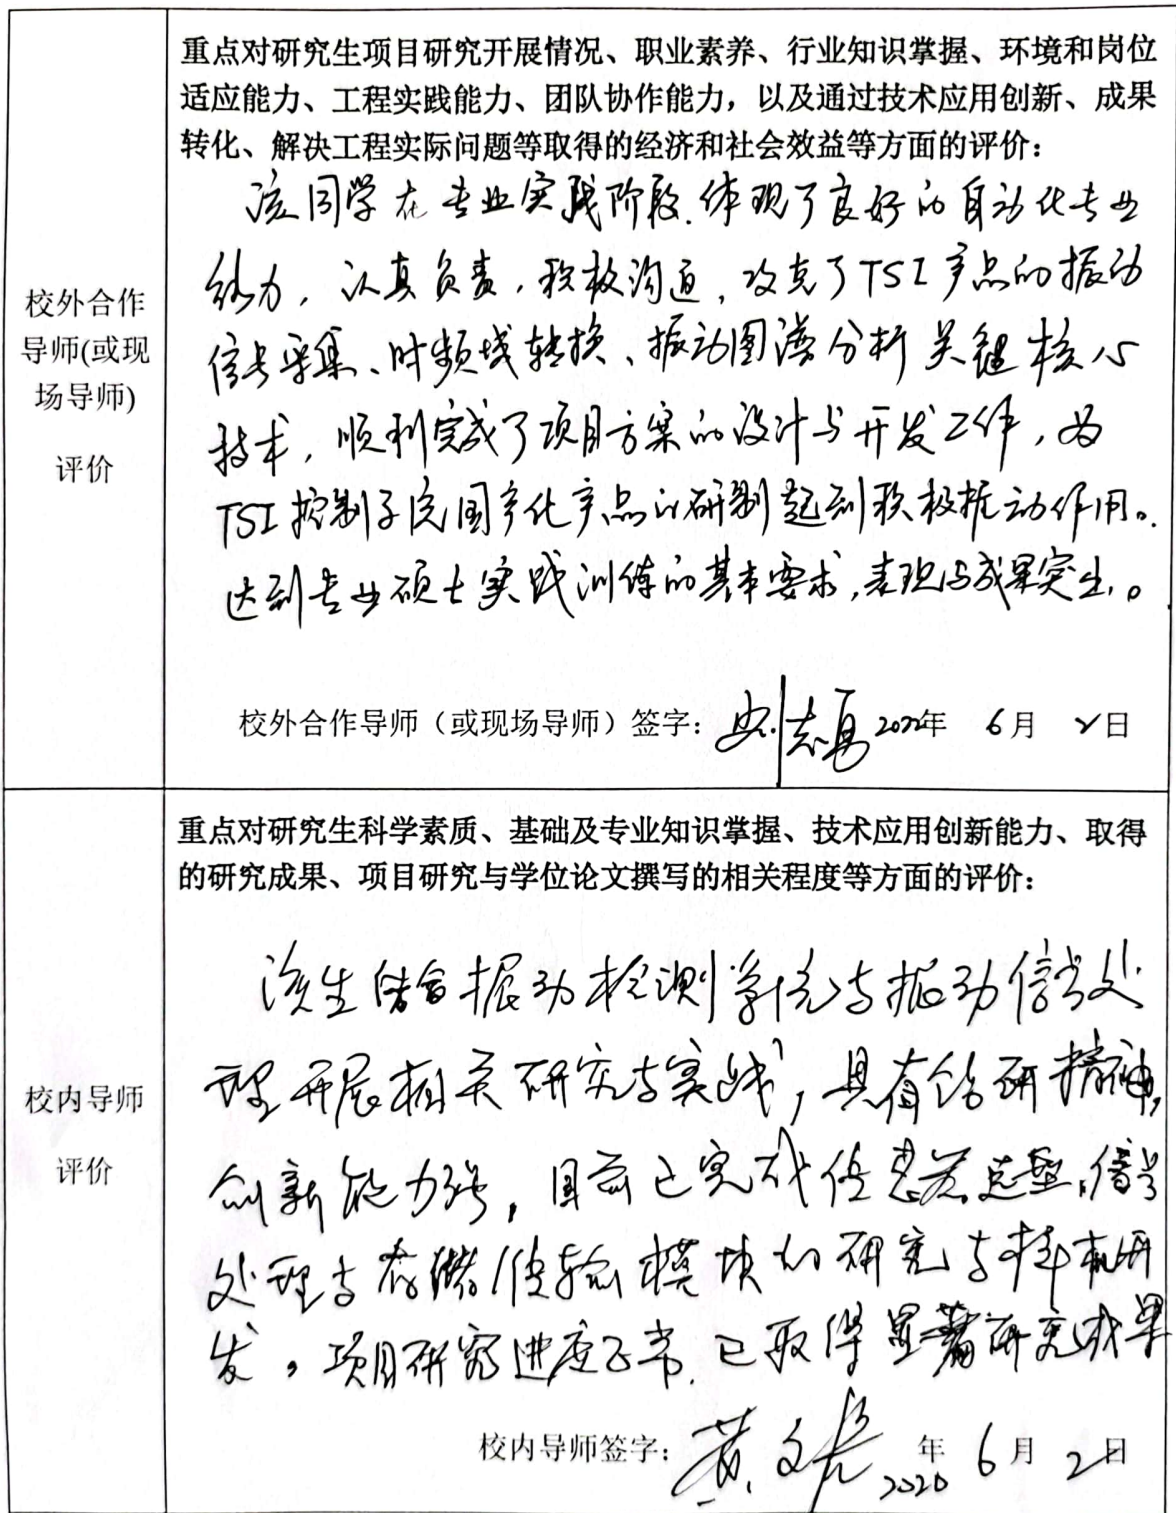 重点对研究生项目研究开展情况、职业素养、行业知识掌握、环境和岗位
适应能力、工程实践能力、团队协作能力，以及通过技术应用创新、成果
转化、解决工程实际问题等取得的经济和社会效益等方面的评价：
该同学在专业实践阶段，体现了良好的自动化专业
能力，认真负责，积极沟通，攻克了TSI产品的振动
信号采集、时频域转换、振动图谱分析关键核心
技术，顺利完成了项目方案的设计与开发工作，为
TSI控制系统国产化产品的研制起到积极推动作用。
达到专业硕士实践训练的基本要求，表现与成果突出。
校外合作
导师(或现
场导师)
评价
校外合作导师（或现场导师）签字：刘志勇 2022年 6月 2日
重点对研究生科学素质、基础及专业知识掌握、技术应用创新能力、取得
的研究成果、项目研究与学位论文撰写的相关程度等方面的评价：
该生结合振动检测系统与振动信号处
理开展相关研究与实践，具有钻研精神，
创新能力强，目前已完成传感器选型，信号
处理与存储传输模块的研究与样机研
发，项目研究进度正常，已取得显著研究成果
校内导师
评价
校内导师签字：黄文 2020年 6月 2日